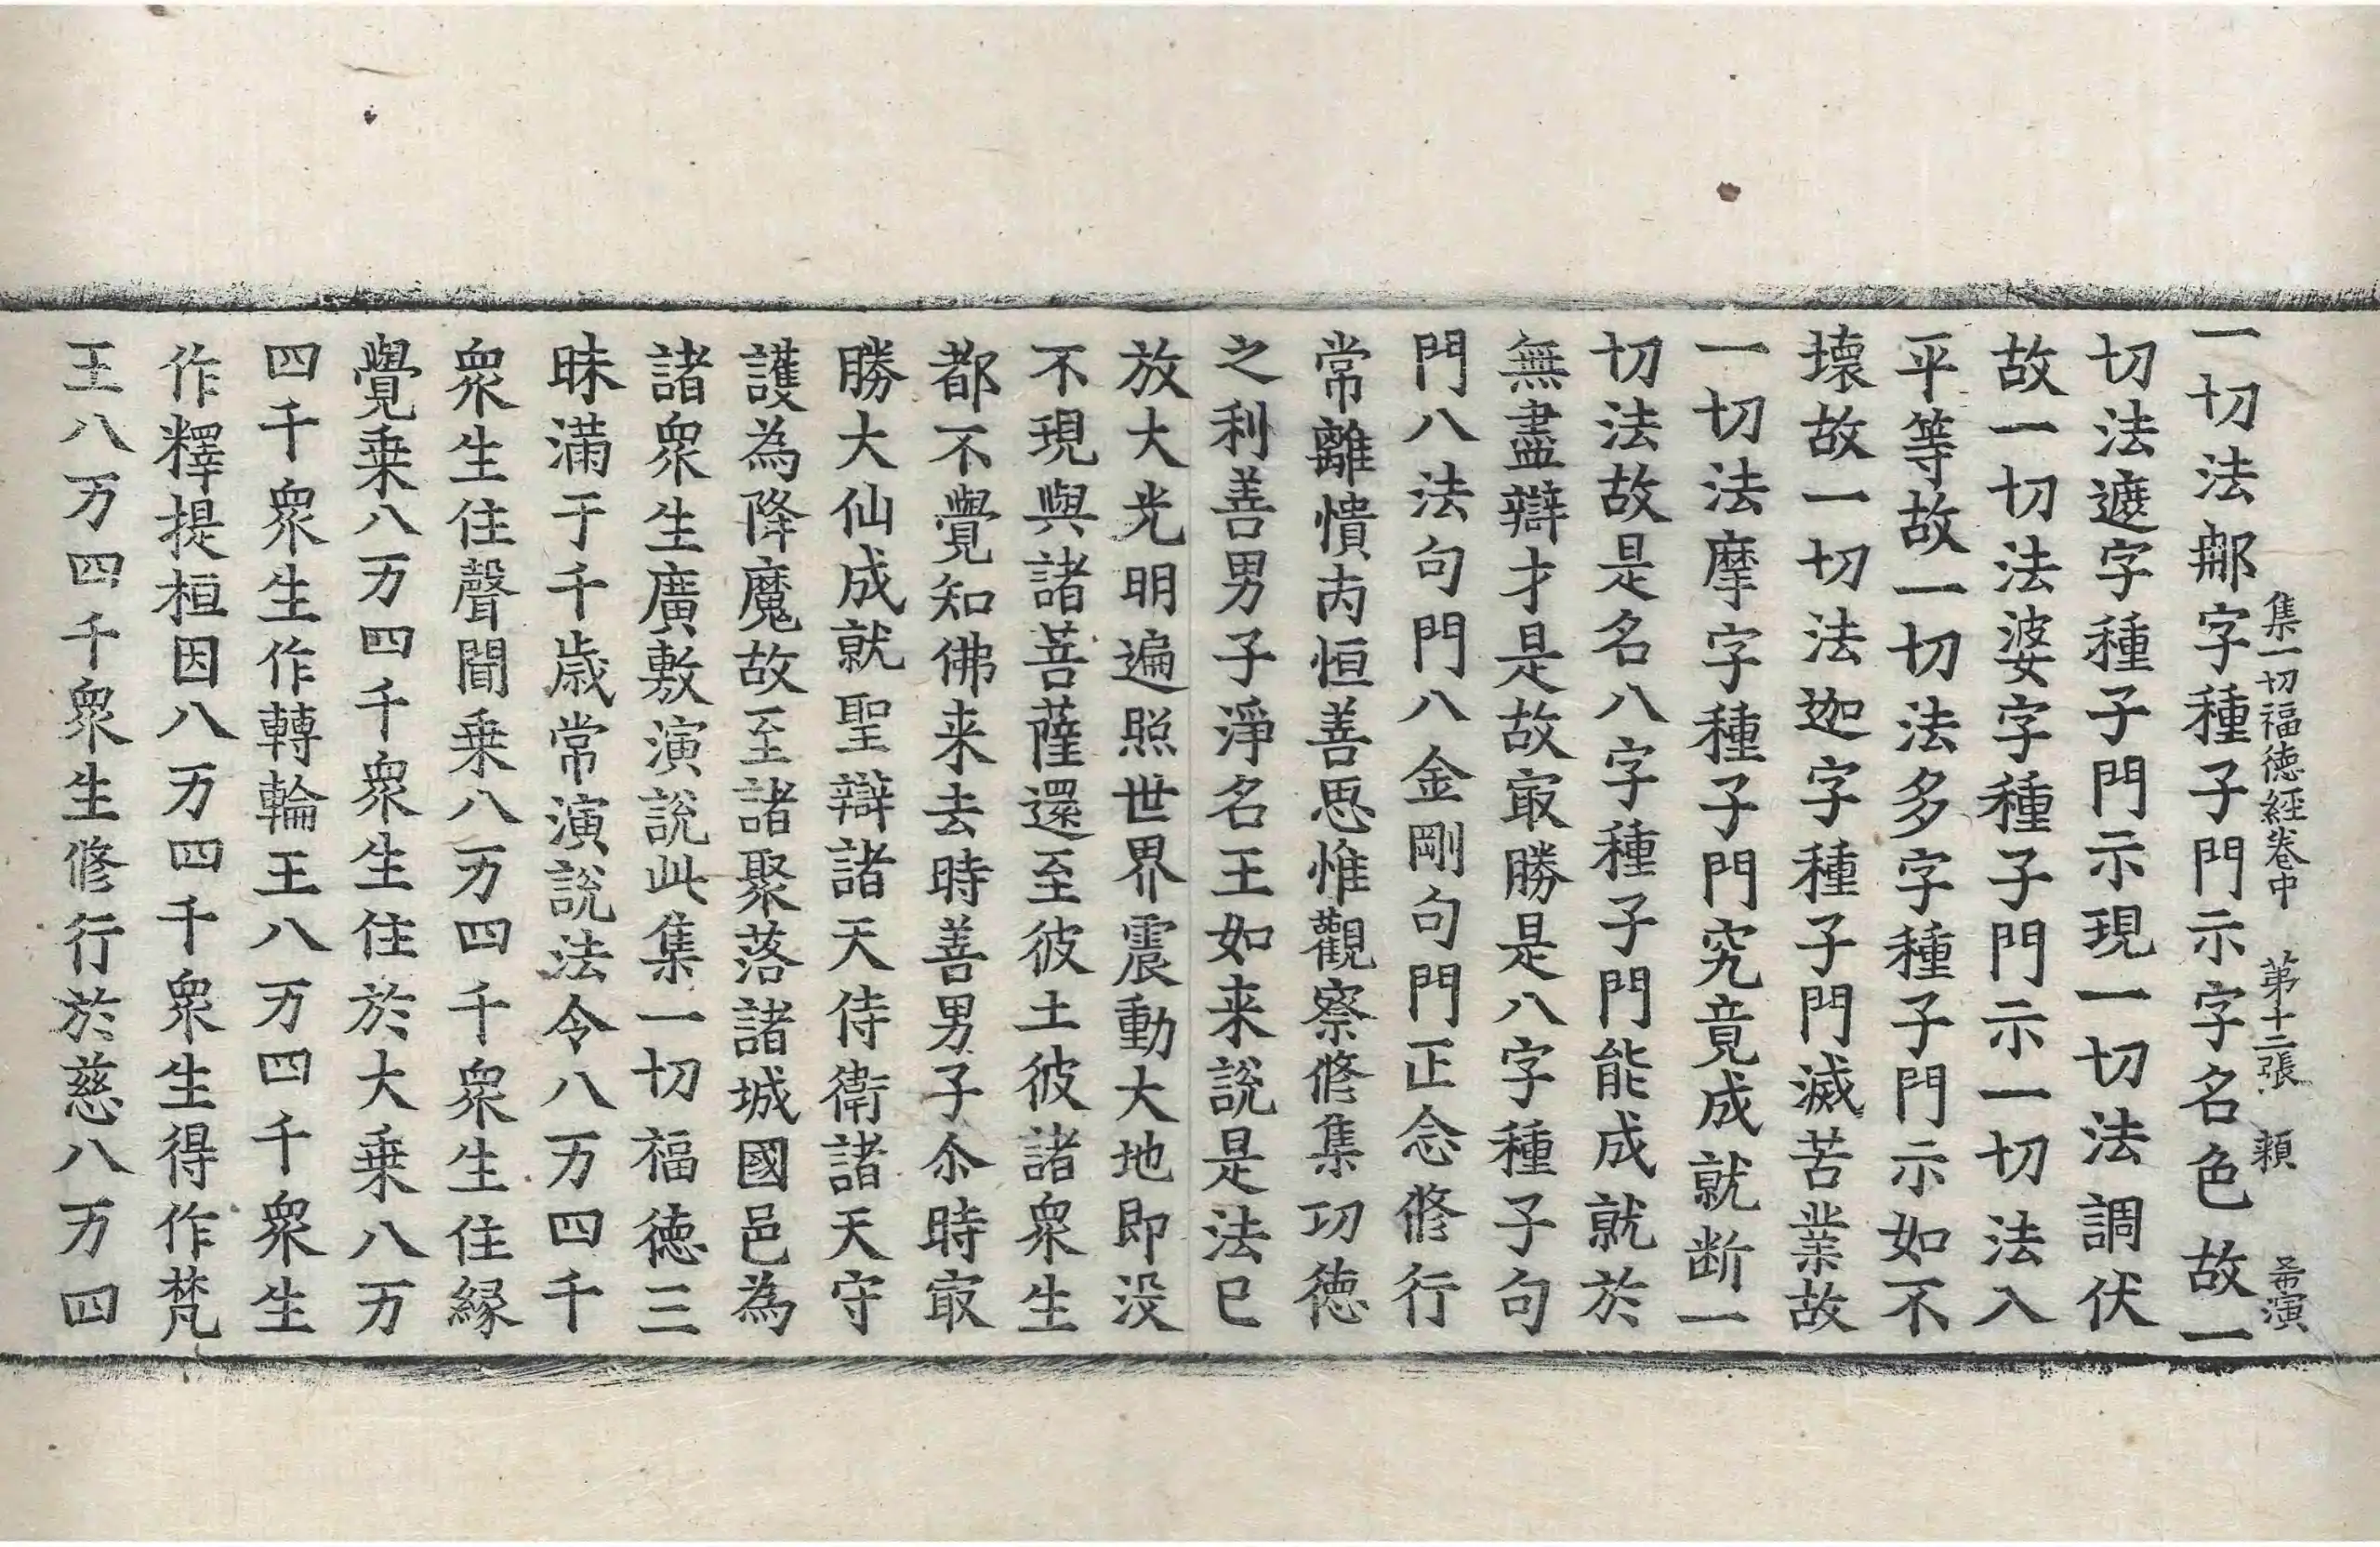 集一切福徳經卷中 第十二張 頼 𢁉演
一切法𨚗字種子門示字名色故一
切法遮字種子門示現一切法調伏
故一切法婆字種子門示一切法入
平等故一切法多字種子門示如不
壊故一切法迦字種子門滅苦業故
一切法摩字種子門究竟成就断一
切法故是名八字種子門能成就於
無盡辯才是故㝡勝是八字種子句
門八法句門八金剛句門正念修行
常離憒丙恒善思惟觀察修集功徳
之利善男子淨名王如来說是法已
放大光明遍照世界震動大地即没
不現與諸菩薩還至彼土彼諸衆生
都不覺知佛来去時善男子尒時㝡
勝大仙成就聖辯諸天侍衛諸天守
護為降魔故至諸聚落諸城國邑為
諸衆生廣敷演說此集一切福徳三
昧滿于千歳常演說法令八万四千
衆生住聲聞乗八万四千衆生住縁
覺乗八万四千衆生住於大乗八万
四千衆生作轉輪王八万四千衆生
作釋提桓因八万四千衆生得作梵
王八万四千衆生修行於慈八万四